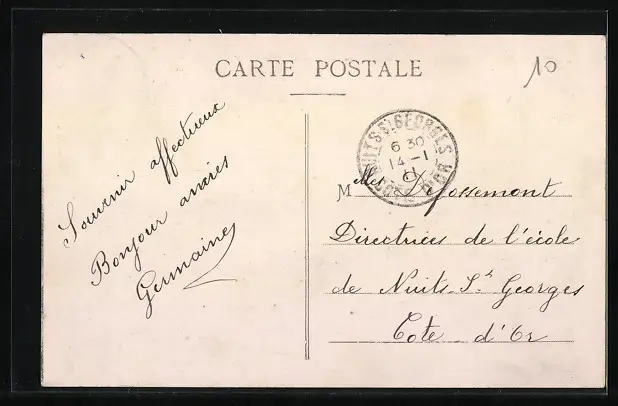 CARTE POSTALE
10
Souvenir affectueux
Bonjour amies
Germaine
NUITS-St-GEORGES
6 30
14-1
11
CÔTE-D'OR
Melles Defossemont
Directrices de l'école
de Nuits-St Georges
Cote d'Or